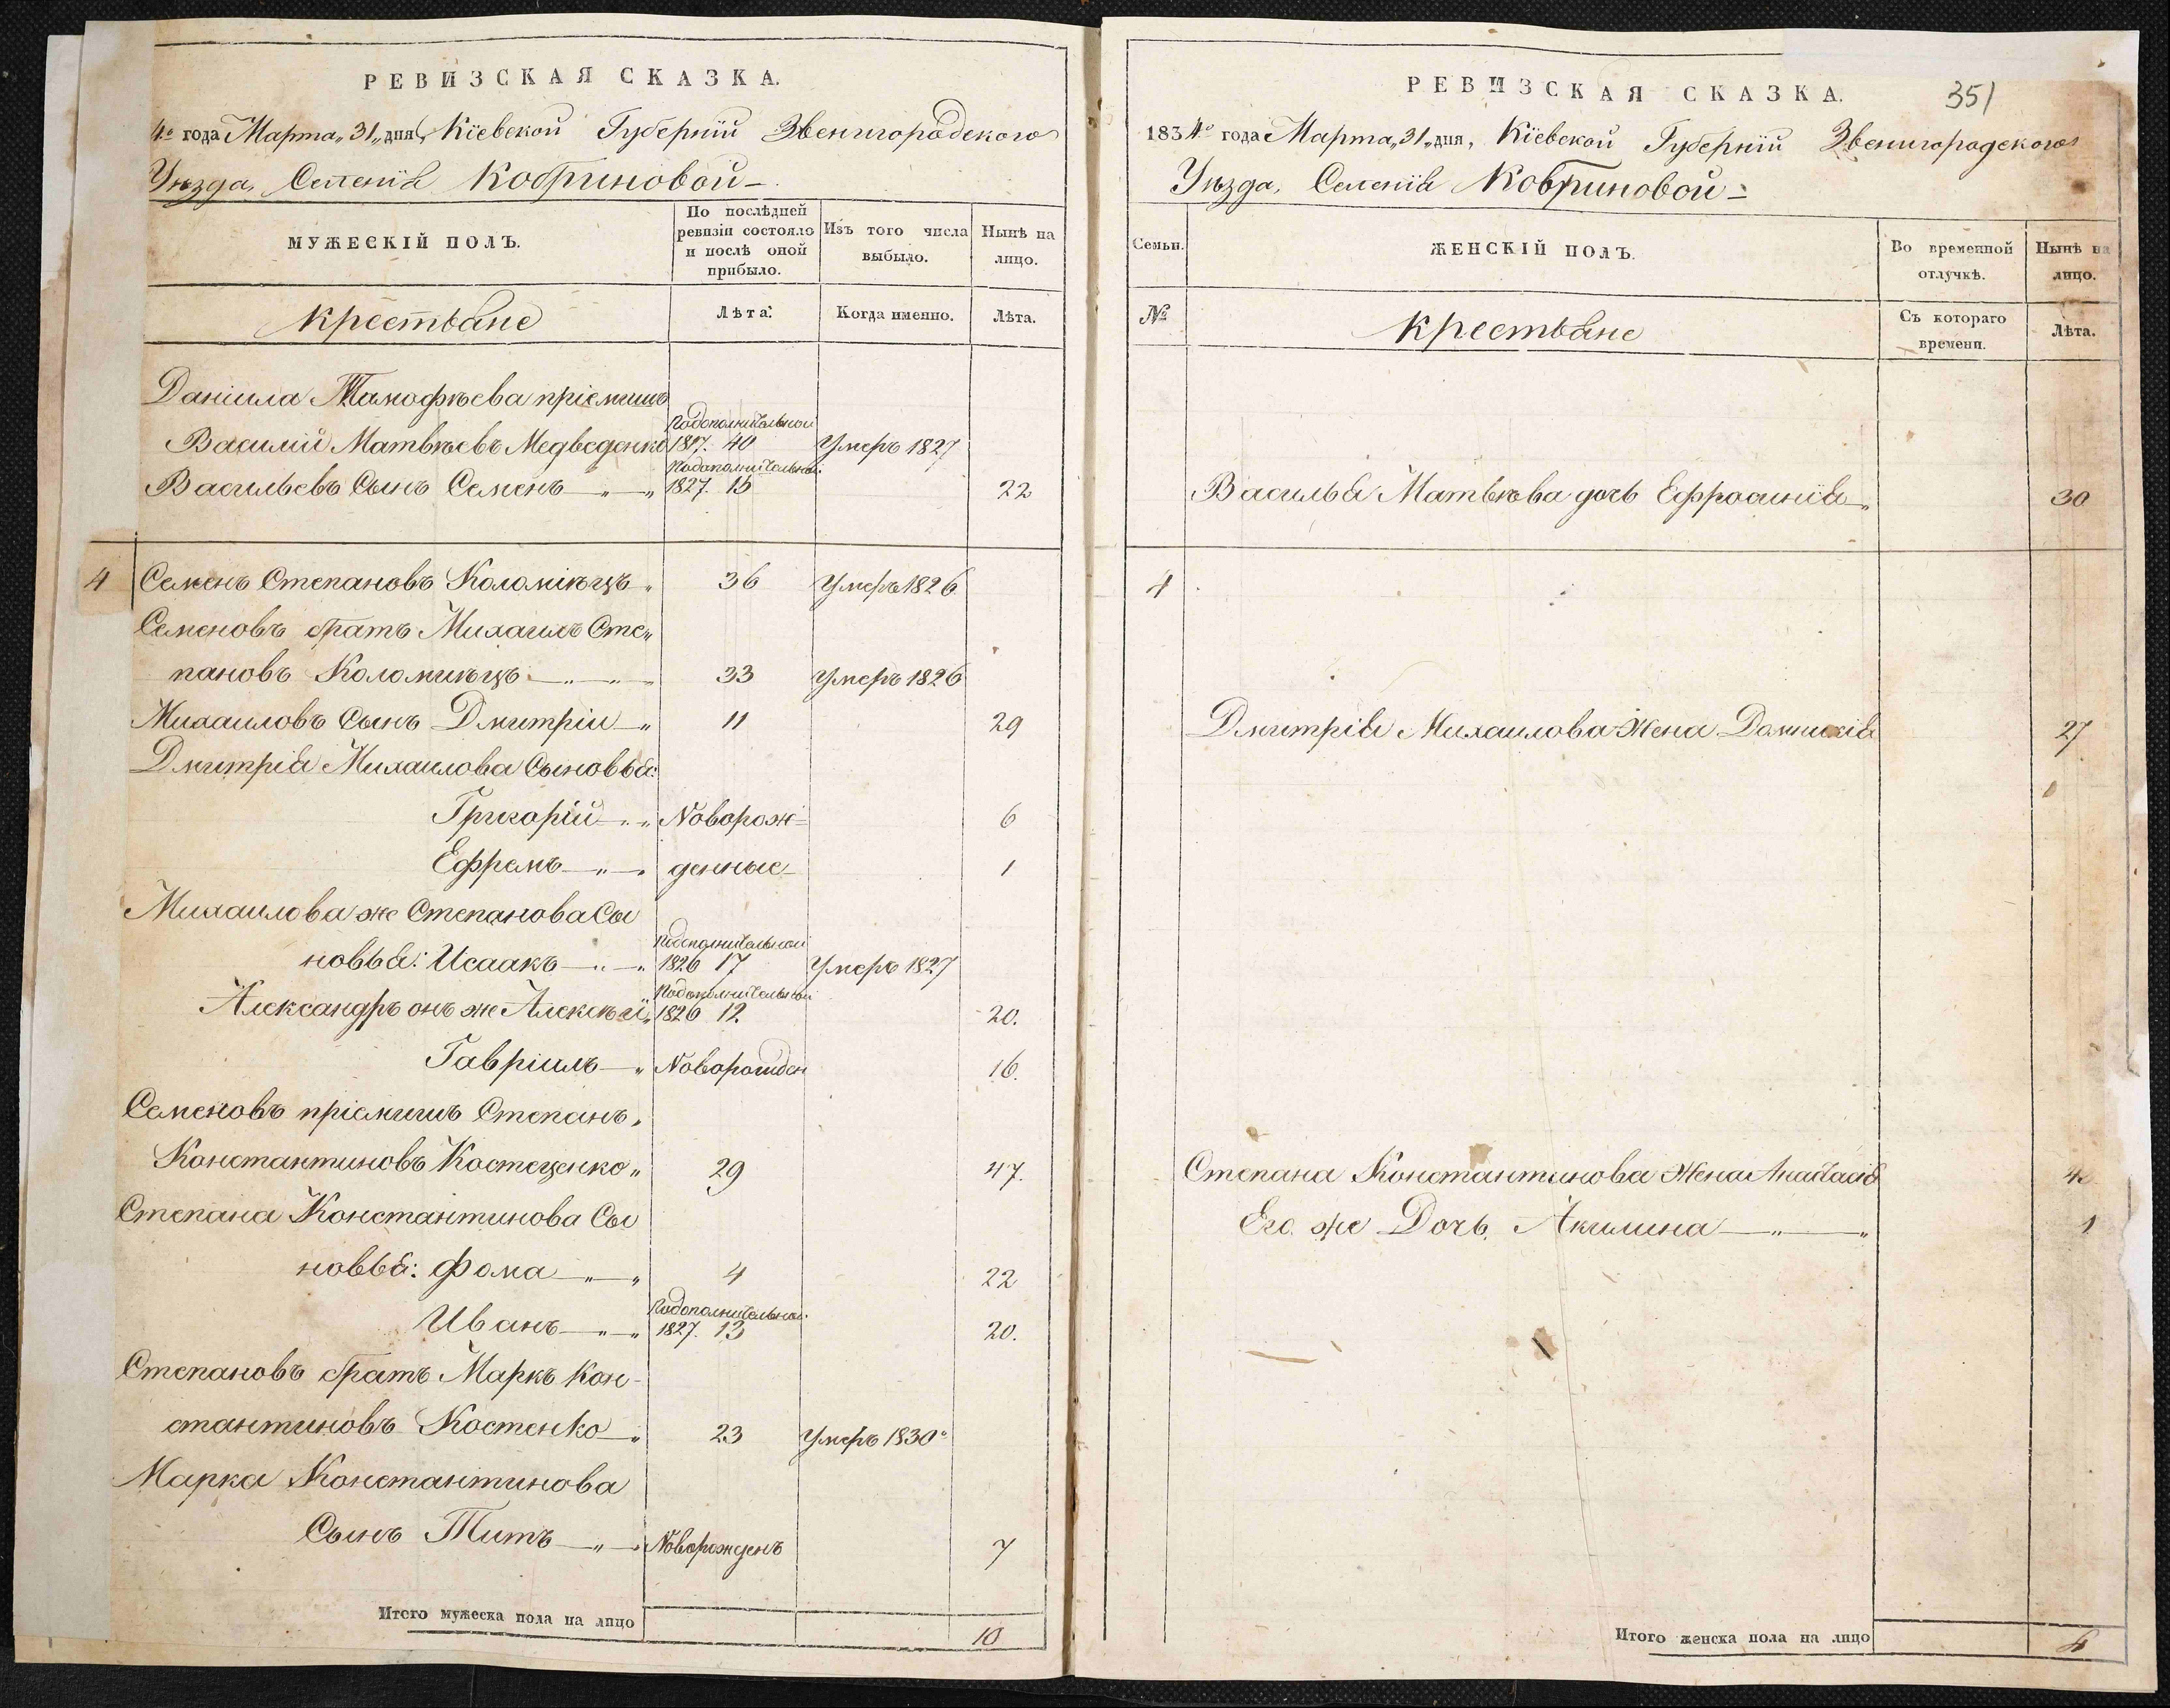 РЕВИЗСКАЯ СКАЗКА.
4го года Марта „31„ дня, Кіевской Губерніи Звенигородского
Уѣзда, Селенія Кобриновой
МУЖЕСКІЙ ПОЛЪ.
По послѣдней ревизіи состояло и послѣ оной прибыло.
Изъ того числа выбыло.
Нынѣ на лицо.
Крестьяне
Лѣта.
Когда именно.
Лѣта.
Даніила Тимофѣева пріемишъ
Подополнительной
Василій Матвѣевъ Медведенко 1827. 40 Умеръ 1827
Подополнительной
Васильевъ Сынъ Семенъ 1827. 15 22
4 Семенъ Степановъ Коломіѣцъ 36 Умеръ 1826
Семеновъ братъ Михаилъ Сте„
пановъ Коломиѣцъ 33 Умеръ 1826
Михаиловъ Сынъ Дмитріи 11 29
Дмитрія Михаилова Сыновья:
Григорій Новорож- 6
Ефремъ денные 1
Михаилова же Степанова Сы
Подополнительной
новья: Исаакъ 1826 17 Умеръ 1827
Подополнительной
Александръ онъ же Алексѣй 1826 12 20.
Гавріилъ Новорожден 16.
Семеновъ пріемишъ Степанъ
Константиновъ Костеценко 29 47.
Степана Константинова Сы
новья: Фома 4 22
Подополнительной
Иванъ 1827. 13 20.
Степановъ братъ Маркъ Кон-
стантиновъ Костенко 23 Умеръ 1830о
Марка Константинова
Сынъ Титъ Новорожденъ 7
Итого мужеска пола на лицо 10
РЕВИЗСКАЯ СКАЗКА.
351
1834го года Марта „31„ дня, Кіевской Губерніи Звенигородского
Уѣзда, Селенія Кобриновой
Семьи.
ЖЕНСКІЙ ПОЛЪ.
Во временной отлучкѣ.
Нынѣ на лицо.
№
Крестьяне
Съ котораго времени.
Лѣта.
Василья Матвѣева дочь Ефросинія 30
4
Дмитрія Михаилова Жена Домникія 27
Степана Константинова Жена Анастасія
Его же Дочь Акилина 1
Итого женска пола на лицо 4